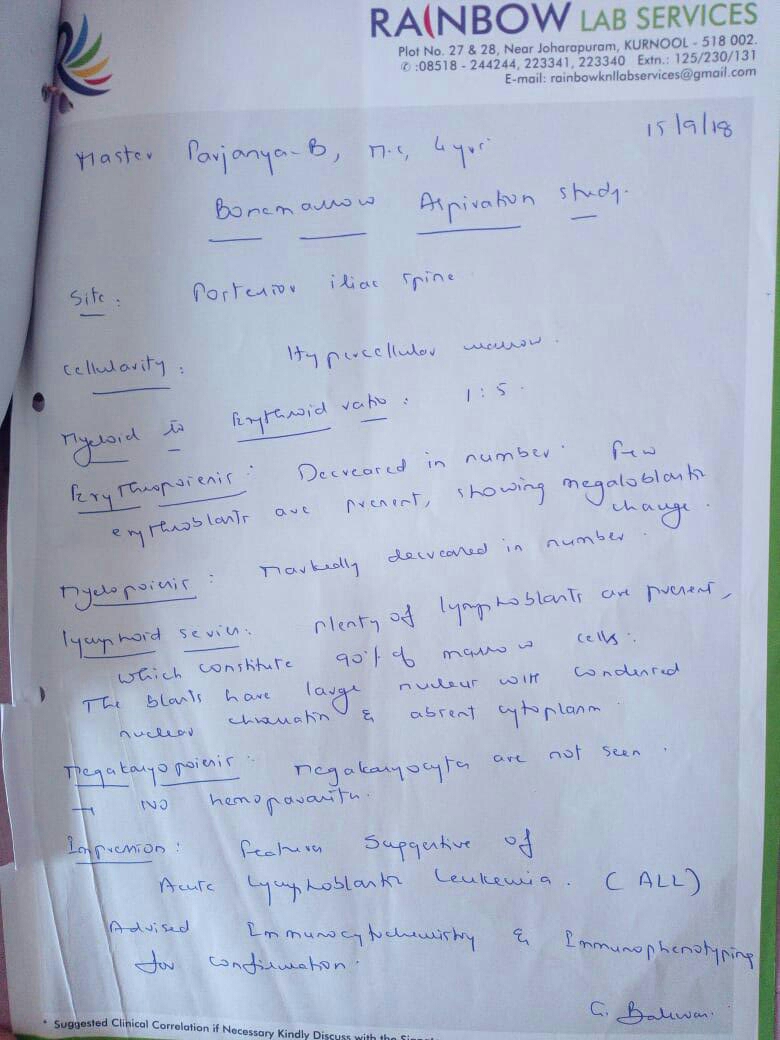 RAINBOW LAB SERVICES
Plot No. 27 & 28, Near Joharapuram, KURNOOL - 518 002.
✆ :08518 - 244244, 223341, 223340 Extn.: 125/230/131
E-mail: rainbowknllabservices@gmail.com
15/9/18
Master Parjanya-B, M.c, 4 yrs
Bonemarrow Aspiration study.
Site : Posterior iliac spine
Cellularity : Hypercellular marrow.
Myeloid to Erythroid ratio : 1 : 5 .
Erythropoiesis : Decreased in number. Few
erythroblasts are present, showing megaloblastic
change.
Myelopoiesis : Markedly decreased in number.
lymphoid series: plenty of lymphoblasts are present,
which constitute 90% of marrow cells.
The blasts have large nucleus with condensed
nuclear chromatin & absent cytoplasm.
Megakaryopoiesis : Megakaryocytes are not seen.
→ NO hemoparasites.
Impression : Features suggestive of
Acute Lymphoblastic Leukemia. (ALL)
Advised Immunocytochemistry & Immunophenotyping
for confirmation.
* Suggested Clinical Correlation if Necessary Kindly Discuss with the